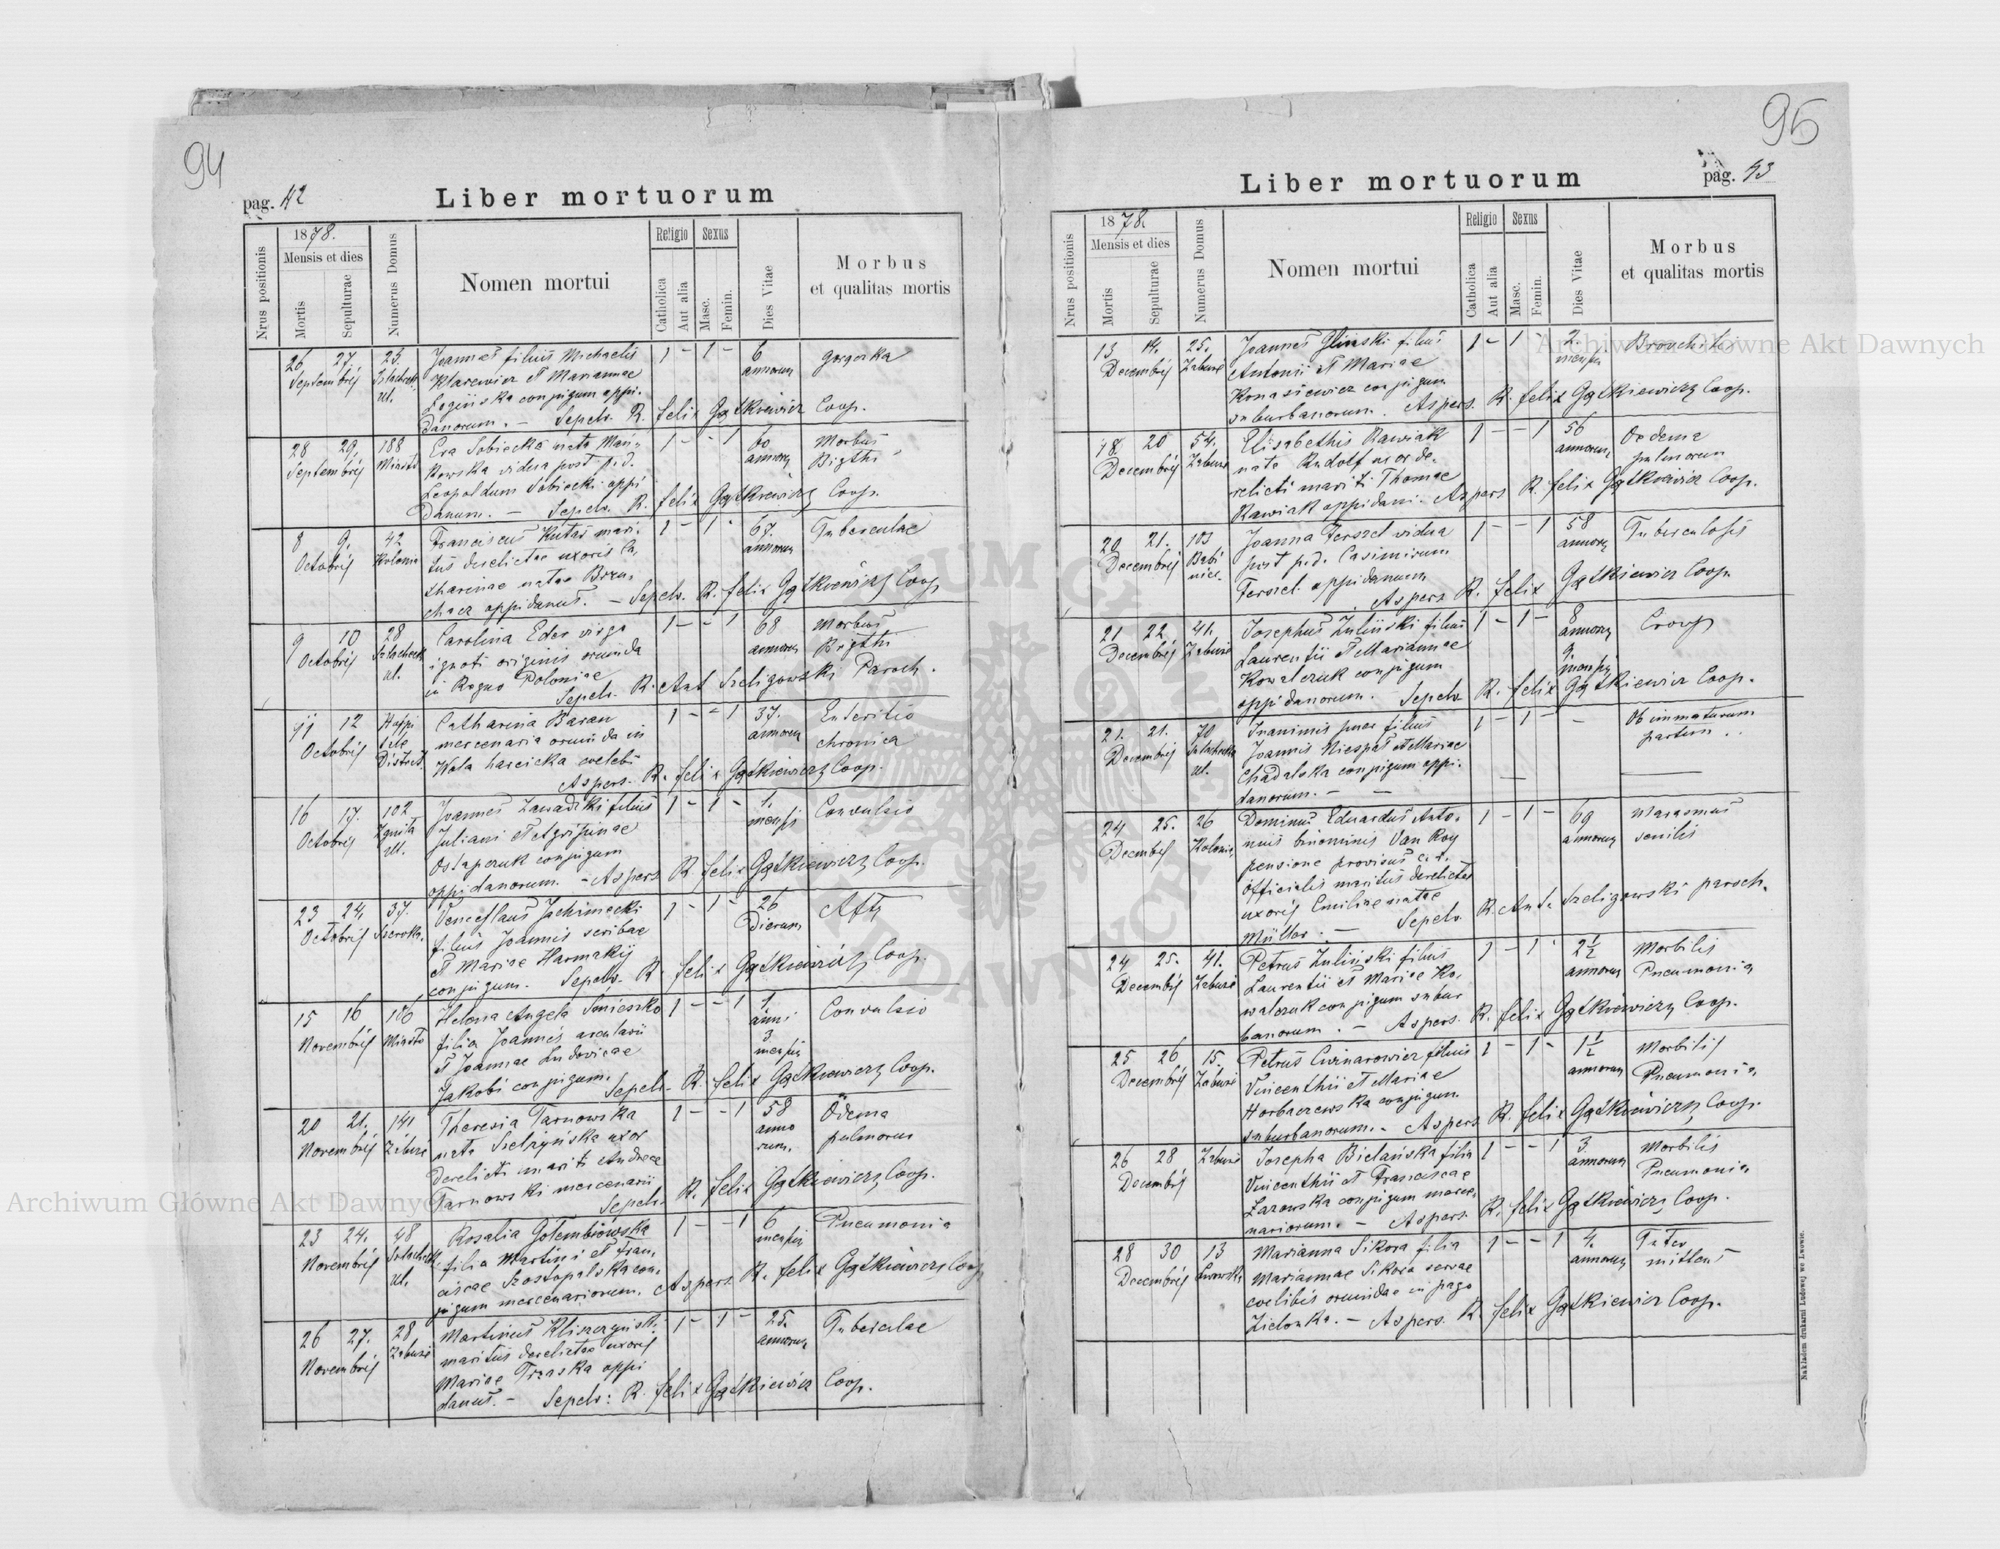 94
pag. 42
Liber mortuorum
Nrus positionis
1878.
Mensis et dies
Mortis
Sepulturae
Numerus Domus
Nomen mortui
Religio
Catholica
Aut alia
Sexus
Masc.
Femin.
Dies Vitae
Morbus
et qualitas mortis
26 27 23 Joannes filius Michaelis 1 - 1 - 6 gorączka
Septembris Szlacheck. Klarewicz et Mariannae annorum
ul. conjugum oppi-
danorum. - Sepelv. R. Felix Gątkiewicz Coop.
28 29. 188 Eva Sobiecka nata Man- 1 - - 1 60 Morbus
Septembris Miasto kowska vidua post p. d. annorum Brigthi
Leopoldum Sobiecki oppi
danum. - Sepelv. R. Felix Gątkiewicz Coop.
8 9. 42 Franciscus Kutas mari- 1 - 1 - 67. Tuberculae
Octobris Kolonia tus derelictae uxoris Ca- annorum
tharinae natae
oppidanus. - Sepelv. R. Felix Gątkiewicz Coop
9 10 28 Carolina Eder virgo 1 - - 1 68 Morbus
Octobris Szlacheck ignoti originis oriunda annorum Brigthi
ul. in Regno Poloniae
Sepelv. R. Ant Szeligowski Paroch.
11 12 Hospi Catharina Baran 1 - - 1 37. Enteritis
Octobris tale mercenaria oriunda in annorum chronica
District. Wola coelebs
Aspers. R. Felix Gątkiewicz Coop.
16 17. 102 Joannes Zawadzki filius 1 - 1 - 1. Convulsio
Octobris Zgniła Juliani et Agripinae mensis
ul. Ostapczuk conjugum
oppidanorum. - Aspers R. Felix Gątkiewicz Coop.
23 24. 37. Venceslaus Jachimecki 1 - 1 - 26 Afty
Octobris Szeroka. filius Joannis scribae Dierum
et Mariae Harmakij
conjugum. Sepelv. R. Felix Gątkiewicz Coop.
15 16 106 Helena Angela Smieszko 1 - - 1 1. Convulsio
Novembris Miasto filia Joannis arcularii anni
et Joannae Ludovicae 3
Jakobi conjugum. mensium
Sepelv. R. Felix Gątkiewicz Coop.
20 21. 141 Theresia Tarnowska 1 - - 1 58 Ödema
Novembris Zabuże nata uxor anno pulmorus
derelicti mariti Andreae rum.
Tarnowski mercenarii
Sepelv. R. Felix Gątkiewicz Coop.
23 24. 48 Rosalia Gołembiowska 1 - - 1 6 Pneumonia
Novembris Szlacheck. filia Martini et Fran- mensium
ul. ciscae Szostopalska con-
jugum mercenariorum. Aspers R. Felix Gątkiewicz Coop
26 27. 28 Martinus Kliszczyński 1 - 1 - 25. Tuberculae
Novembris Zabuże maritus derelictae uxoris annorum
Mariae Trzaska oppi
danus. - Sepelv: R. Felix Gątkiewicz Coop.
96
pag. 43
Liber mortuorum
Nrus positionis
1878.
Mensis et dies
Mortis
Sepulturae
Numerus Domus
Nomen mortui
Religio
Catholica
Aut alia
Sexus
Masc.
Femin.
Dies Vitae
Morbus
et qualitas mortis
13 14. 25. Joannes Gliński filius 1 - 1 - 2.
Decembris Zabuże Antonii et Mariae mensium
Konasiewicz conjugum
suburbanorum. Aspers. R. Felix Gątkiewicz Coop.
18. 20 54. Elisabethis Rawiak 1 - - 1 56 Oedema
Decembris Zabuże nata Rudolf uxor de- annorum pulmorum
relicti mariti Thomae
Rawiak oppidani. Aspers R. Felix Gątkiewicz Coop.
20 21. 103 Joanna Ferszel vidua 1 - - 1 58 Tuberculosis
Decembris Babi post p. d. Casimirum annorum
niec. Ferszel oppidanum
Aspers R. Felix Gątkiewicz Coop.
21 22 41. Josephus Zuliński filius 1 - 1 - 8 Croup
Decembris Zabuże Laurentii et Mariannae annorum
Kowalczuk conjugum 9.
oppidanorum. Sepelv R. Felix Gątkiewicz Coop.
21. 21. 70 Inanimis puer filius 1 - 1 - - Ob immaturum
Decembris Szlachecka Joannis Niespał et Mariae partum
ul. Chadalska conjugum oppi-
danorum. -
24 25. 26 Dominus Eduardus Anto- 1 - 1 - 69 Marasmus
Decembris Kolonia nius binominis Van Roy annorum senilis
pensione provisus c. r.
officialis maritus derelictae
uxoris Emiliae natae
Müller. - Sepelv R. Ant. Szeligowski paroch.
24 25. 41. Petrus Zuliński filius 1 - 1 2½ Morbilis
Decembris Zabuże Laurentii et Mariae Ko- annorum Pneumonia
walczuk conjugum subur
banorum. - Aspers. R. Felix Gątkiewicz Coop.
25 26 15. Petrus Cwinarowicz filius 1 - 1 - 1½ Morbilis
Decembris Zabuże Vincenthii et Mariae annorum Pneumonia
Horbaczewska conjugum
suburbanorum. - Aspers R. Felix Gątkiewicz Coop.
26 28 Zabuże Josepha Bielańska filia 1 - - 1 3. Morbilis
Decembris Vincenthii et Franciscae annorum Pneumonia
Lazowska conjugum merce-
nariorum. - Aspers. R. Felix Gątkiewicz Coop.
28 30 13 Marianna Sikora filia 1 - - 1 4.
Decembris Lwowska Mariannae Sikora servae annorum
coelibis oriundae in pago
Zielonka. - Aspers. R. Felix Gątkiewicz Coop.
Nakładem drukarni Ludowej we Lwowie.
Archiwum Główne Akt Dawnych
Archiwum Główne Akt Dawnych